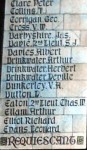 Clare Peter
Collins T.
Corrigan Geo.
Cross V. W.
Darbyshire Jas.
Davies Albert
Drinkwater Arthur
Drinkwater Herbert
Drinkwater Neville
Dunkerley. V. A.
Dutton. D.
Eaton 2nd Lieut Chas. W.
Ellam Arthur
Elliot Richard
Evans Leonard
REQUIESCANT